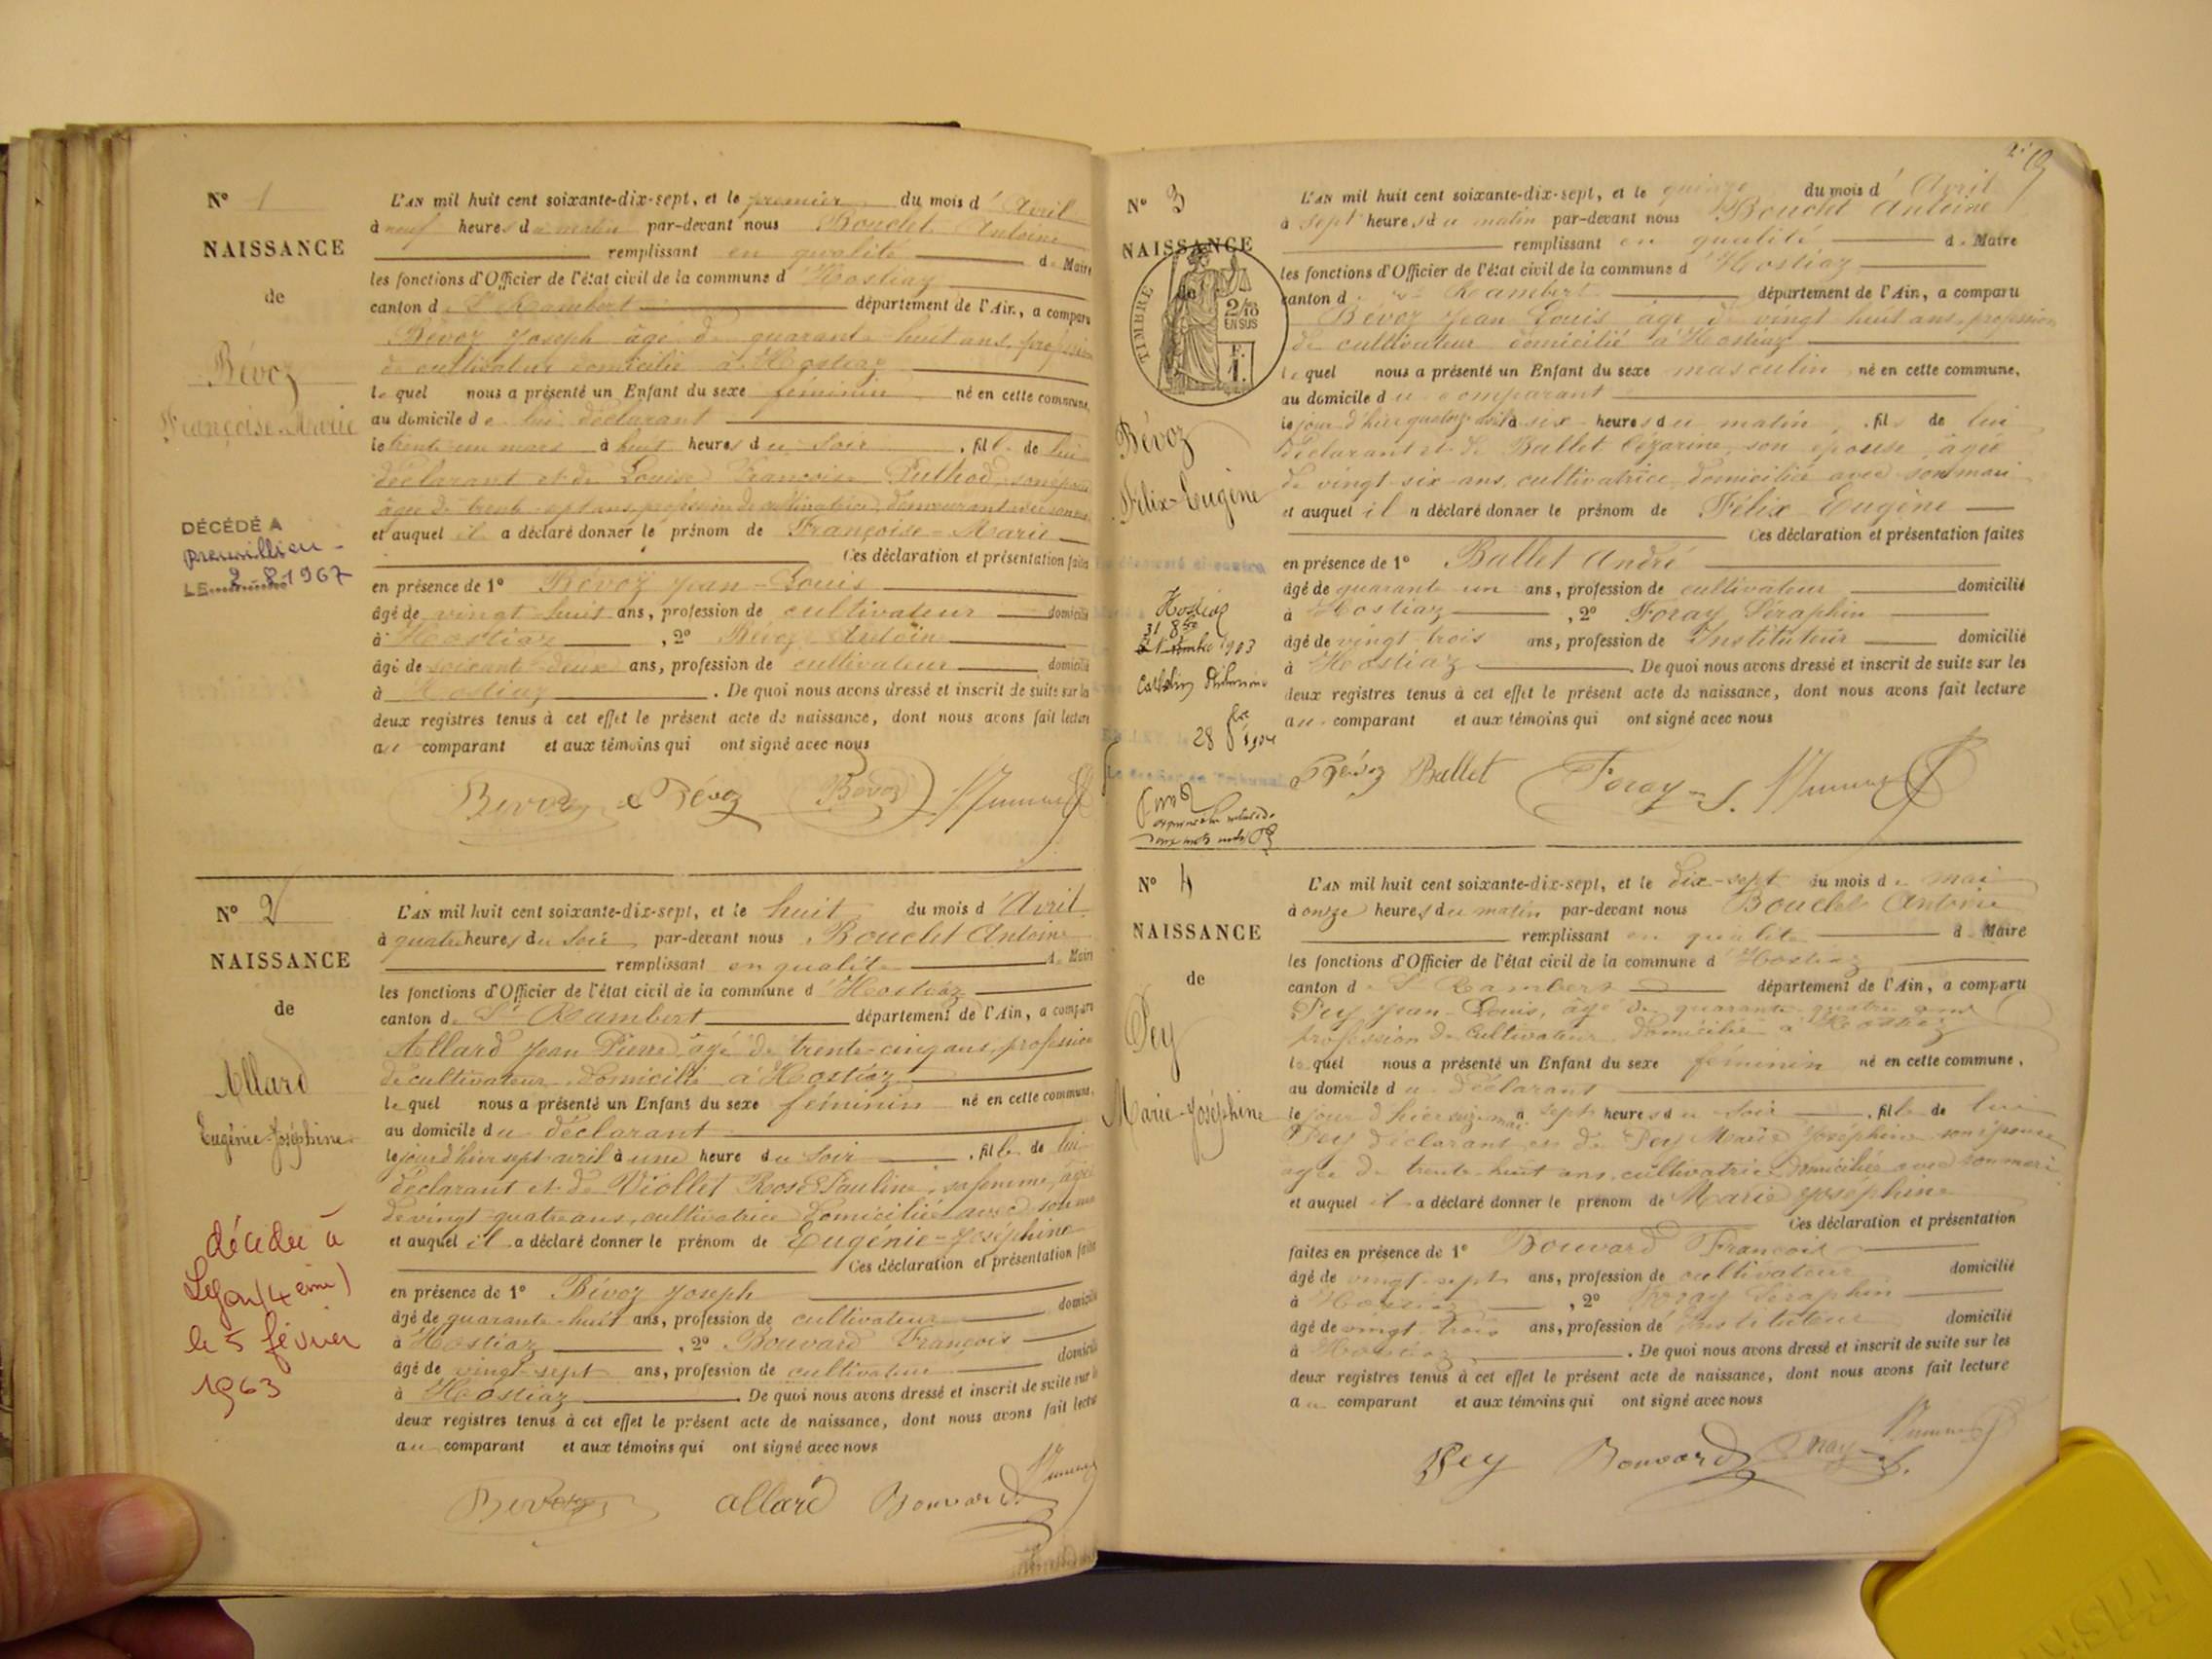 N° 1
NAISSANCE
de
Bévoz
Françoise-Marie
DÉCÉDÉ A
LE 2-8 1967
L'AN mil huit cent soixante-dix-sept, et le premier du mois d'Avril
à neuf heures du matin par-devant nous Bouclet Antoine
remplissant en qualité de Maire
les fonctions d'Officier de l'état civil de la commune d'Hostiaz
canton de St Rambert département de l'Ain, a comparu
Bévoz Joseph âgé de quarante-huit ans, profession
de cultivateur domicilié à Hostiaz
lequel nous a présenté un Enfant du sexe féminin né en cette commune,
au domicile de lui déclarant
le trente un mars à huit heures du soir, fille de lui
déclarant et de Louise Françoise son épouse
âgée de trente-sept ans, profession de cultivatrice, demeurant avec
et auquel il a déclaré donner le prénom de Françoise-Marie
Ces déclaration et présentation faites
en présence de 1° Bévoz Jean-Louis
âgé de vingt huit ans, profession de cultivateur domicilié
à Hostiaz, 2° Bévoz Antoine
âgé de soixante-deux ans, profession de cultivateur domicilié
à Hostiaz. De quoi nous avons dressé et inscrit de suite sur les
deux registres tenus à cet effet le présent acte de naissance, dont nous avons fait lecture
au comparant et aux témoins qui ont signé avec nous
Bévoz Bévoz Bévoz
N° 2
NAISSANCE
de
Allard
Eugénie-Joséphine
décédée à
Lyon (4 ème)
le 5 février
1963
L'AN mil huit cent soixante-dix-sept, et le huit du mois d'Avril
à quatre heures du soir par-devant nous Bouclet Antoine
remplissant en qualité de Maire
les fonctions d'Officier de l'état civil de la commune d'Hostiaz
canton de St Rambert département de l'Ain, a comparu
Allard Jean Pierre, âgé de trente-cinq ans, profession
de cultivateur domicilié à Hostiaz
lequel nous a présenté un Enfant du sexe féminin né en cette commune,
au domicile du déclarant
le jour d'hier sept avril à une heure du soir, fille de lui
déclarant et de Viollet Rose Pauline, sa femme, âgée
de vingt-quatre ans, cultivatrice domiciliée avec son
et auquel il a déclaré donner le prénom de Eugénie-Joséphine
Ces déclaration et présentation faites
en présence de 1° Bévoz Joseph
âgé de quarante-huit ans, profession de cultivateur domicilié
à Hostiaz, 2° Bouvard François
âgé de vingt-sept ans, profession de cultivateur domicilié
à Hostiaz. De quoi nous avons dressé et inscrit de suite sur les
deux registres tenus à cet effet le présent acte de naissance, dont nous avons fait lecture
au comparant et aux témoins qui ont signé avec nous
Bévoz allard Bouvard
N° 3
NAISSANCE
de
TIMBRE
2/10
EN SUS
F.
1.
Bévoz
Félix-Eugène
Hostiaz
31 8bre
1903
28
1904
L'AN mil huit cent soixante-dix-sept, et le quinze du mois d'Avril
à sept heures du matin par-devant nous Bouclet Antoine
remplissant en qualité de Maire
les fonctions d'Officier de l'état civil de la commune d'Hostiaz
canton de St Rambert département de l'Ain, a comparu
Bévoz Jean Louis âgé de vingt huit ans, profession
de cultivateur domicilié à Hostiaz
lequel nous a présenté un Enfant du sexe masculin, né en cette commune,
au domicile du comparant
le jour d'hier quatorze avril à six heures du matin, fils de lui
déclarant et de Ballet Cézarine, son épouse, âgée
de vingt-six ans, cultivatrice, domiciliée avec son mari
et auquel il a déclaré donner le prénom de Félix-Eugène
Ces déclaration et présentation faites
en présence de 1° Ballet André
âgé de quarante un ans, profession de cultivateur domicilié
à Hostiaz, 2° Foray Séraphin
âgé de vingt-trois ans, profession de Instituteur domicilié
à Hostiaz. De quoi nous avons dressé et inscrit de suite sur les
deux registres tenus à cet effet le présent acte de naissance, dont nous avons fait lecture
au comparant et aux témoins qui ont signé avec nous
Bévoz Ballet Foray S.
N° 4
NAISSANCE
de
Pey
Marie-Joséphine
L'AN mil huit cent soixante-dix-sept, et le dix-sept du mois de mai
à onze heures du matin par-devant nous Bouclet Antoine
remplissant en qualité de Maire
les fonctions d'Officier de l'état civil de la commune d'Hostiaz
canton de St Rambert département de l'Ain, a comparu
Pey Jean-Louis, âgé de quarante-quatre ans
profession de cultivateur domicilié à Hostiaz
lequel nous a présenté un Enfant du sexe féminin né en cette commune,
au domicile du déclarant
le jour d'hier seize mai à sept heures du soir, fille de lui
Pey déclarant et de Pey Marie Joséphine son épouse
âgée de trente-huit ans, cultivatrice domiciliée avec son mari
et auquel il a déclaré donner le prénom de Marie Joséphine
Ces déclaration et présentation
faites en présence de 1° Bouvard François
âgé de vingt-sept ans, profession de cultivateur domicilié
à Hostiaz, 2° Foray Séraphin
âgé de vingt-trois ans, profession de Instituteur domicilié
à Hostiaz. De quoi nous avons dressé et inscrit de suite sur les
deux registres tenus à cet effet le présent acte de naissance, dont nous avons fait lecture
au comparant et aux témoins qui ont signé avec nous
Pey Bouvard Foray S.